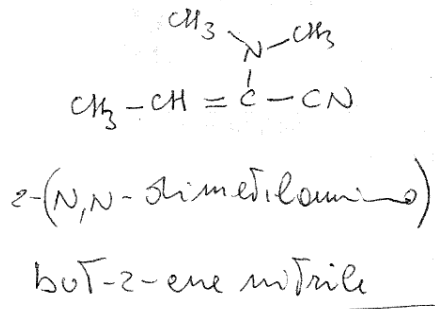 CH₃ CH₃
N
CH₃ - CH = C - CN
2-(N,N-dimetilamino)
but-2-ene nitrile